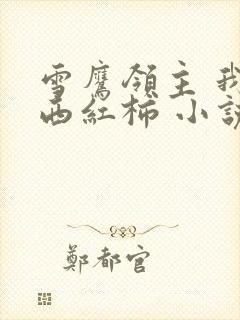 雪鷹領主 我
西紅柿 小說
鄭都官